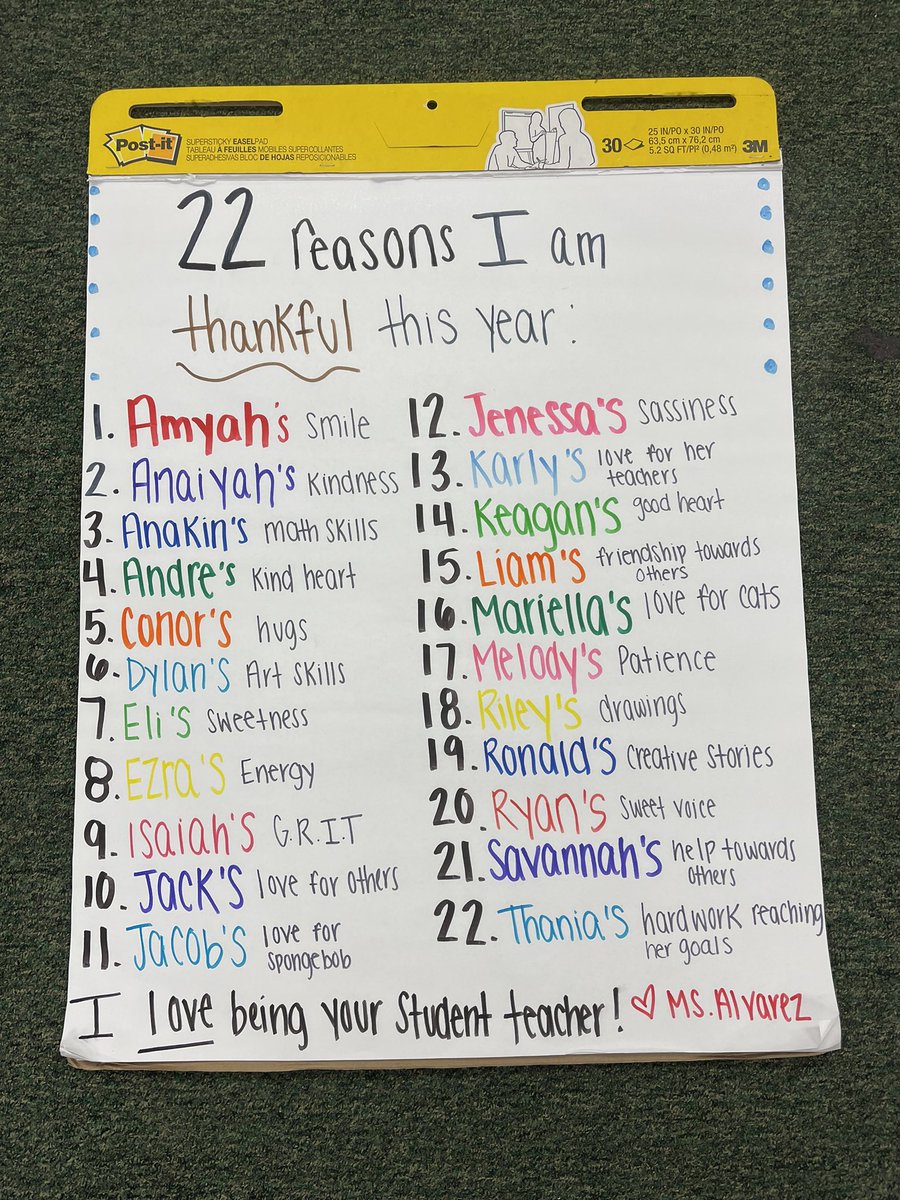 Post-it
SUPERSTICKY EASELPAD
TABLEAU À FEUILLES MOBILES SUPER COLLANTES
SUPERADHESIVAS BLOC DE HOJAS REPOSICIONABLES
30
25 IN/PO x 30 IN/PO
63,5 cm x 76,2 cm
5.2 SQ FT/PI² (0,48 m²)
3M
22 reasons I am
thankful this year:
1. Amyah's smile
2. Anaiyah's kindness
3. Anakin's math skills
4. Andre's kind heart
5. Conor's hugs
6. Dylan's Art skills
7. Eli's sweetness
8. Ezra's Energy
9. Isaiah's G.R.I.T
10. Jack's love for others
11. Jacob's love for
spongebob
12. Jenessa's sassiness
13. Karly's love for her
teachers
14. Keagan's good heart
15. Liam's friendship towards
others
16. Mariella's love for cats
17. Melody's Patience
18. Riley's drawings
19. Ronald's creative stories
20. Ryan's sweet voice
21. Savannah's help towards
others
22. Thania's hardwork reaching
her goals
I love being your student teacher! ♡ MS. Alvarez